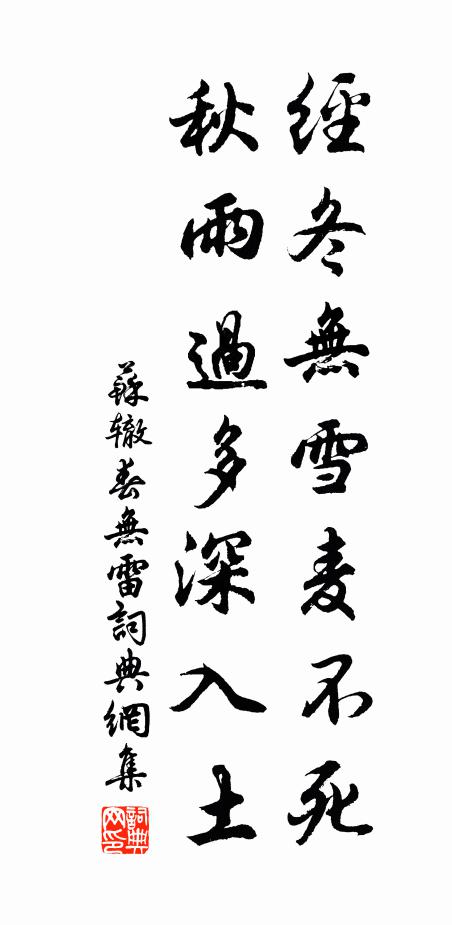 經冬無雪麦不死
秋雨過多深入土
蘇辙春無雷詞典網集
詞典
网印